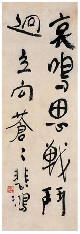 哀鳴思戰鬥
迥立向蒼〻悲鴻